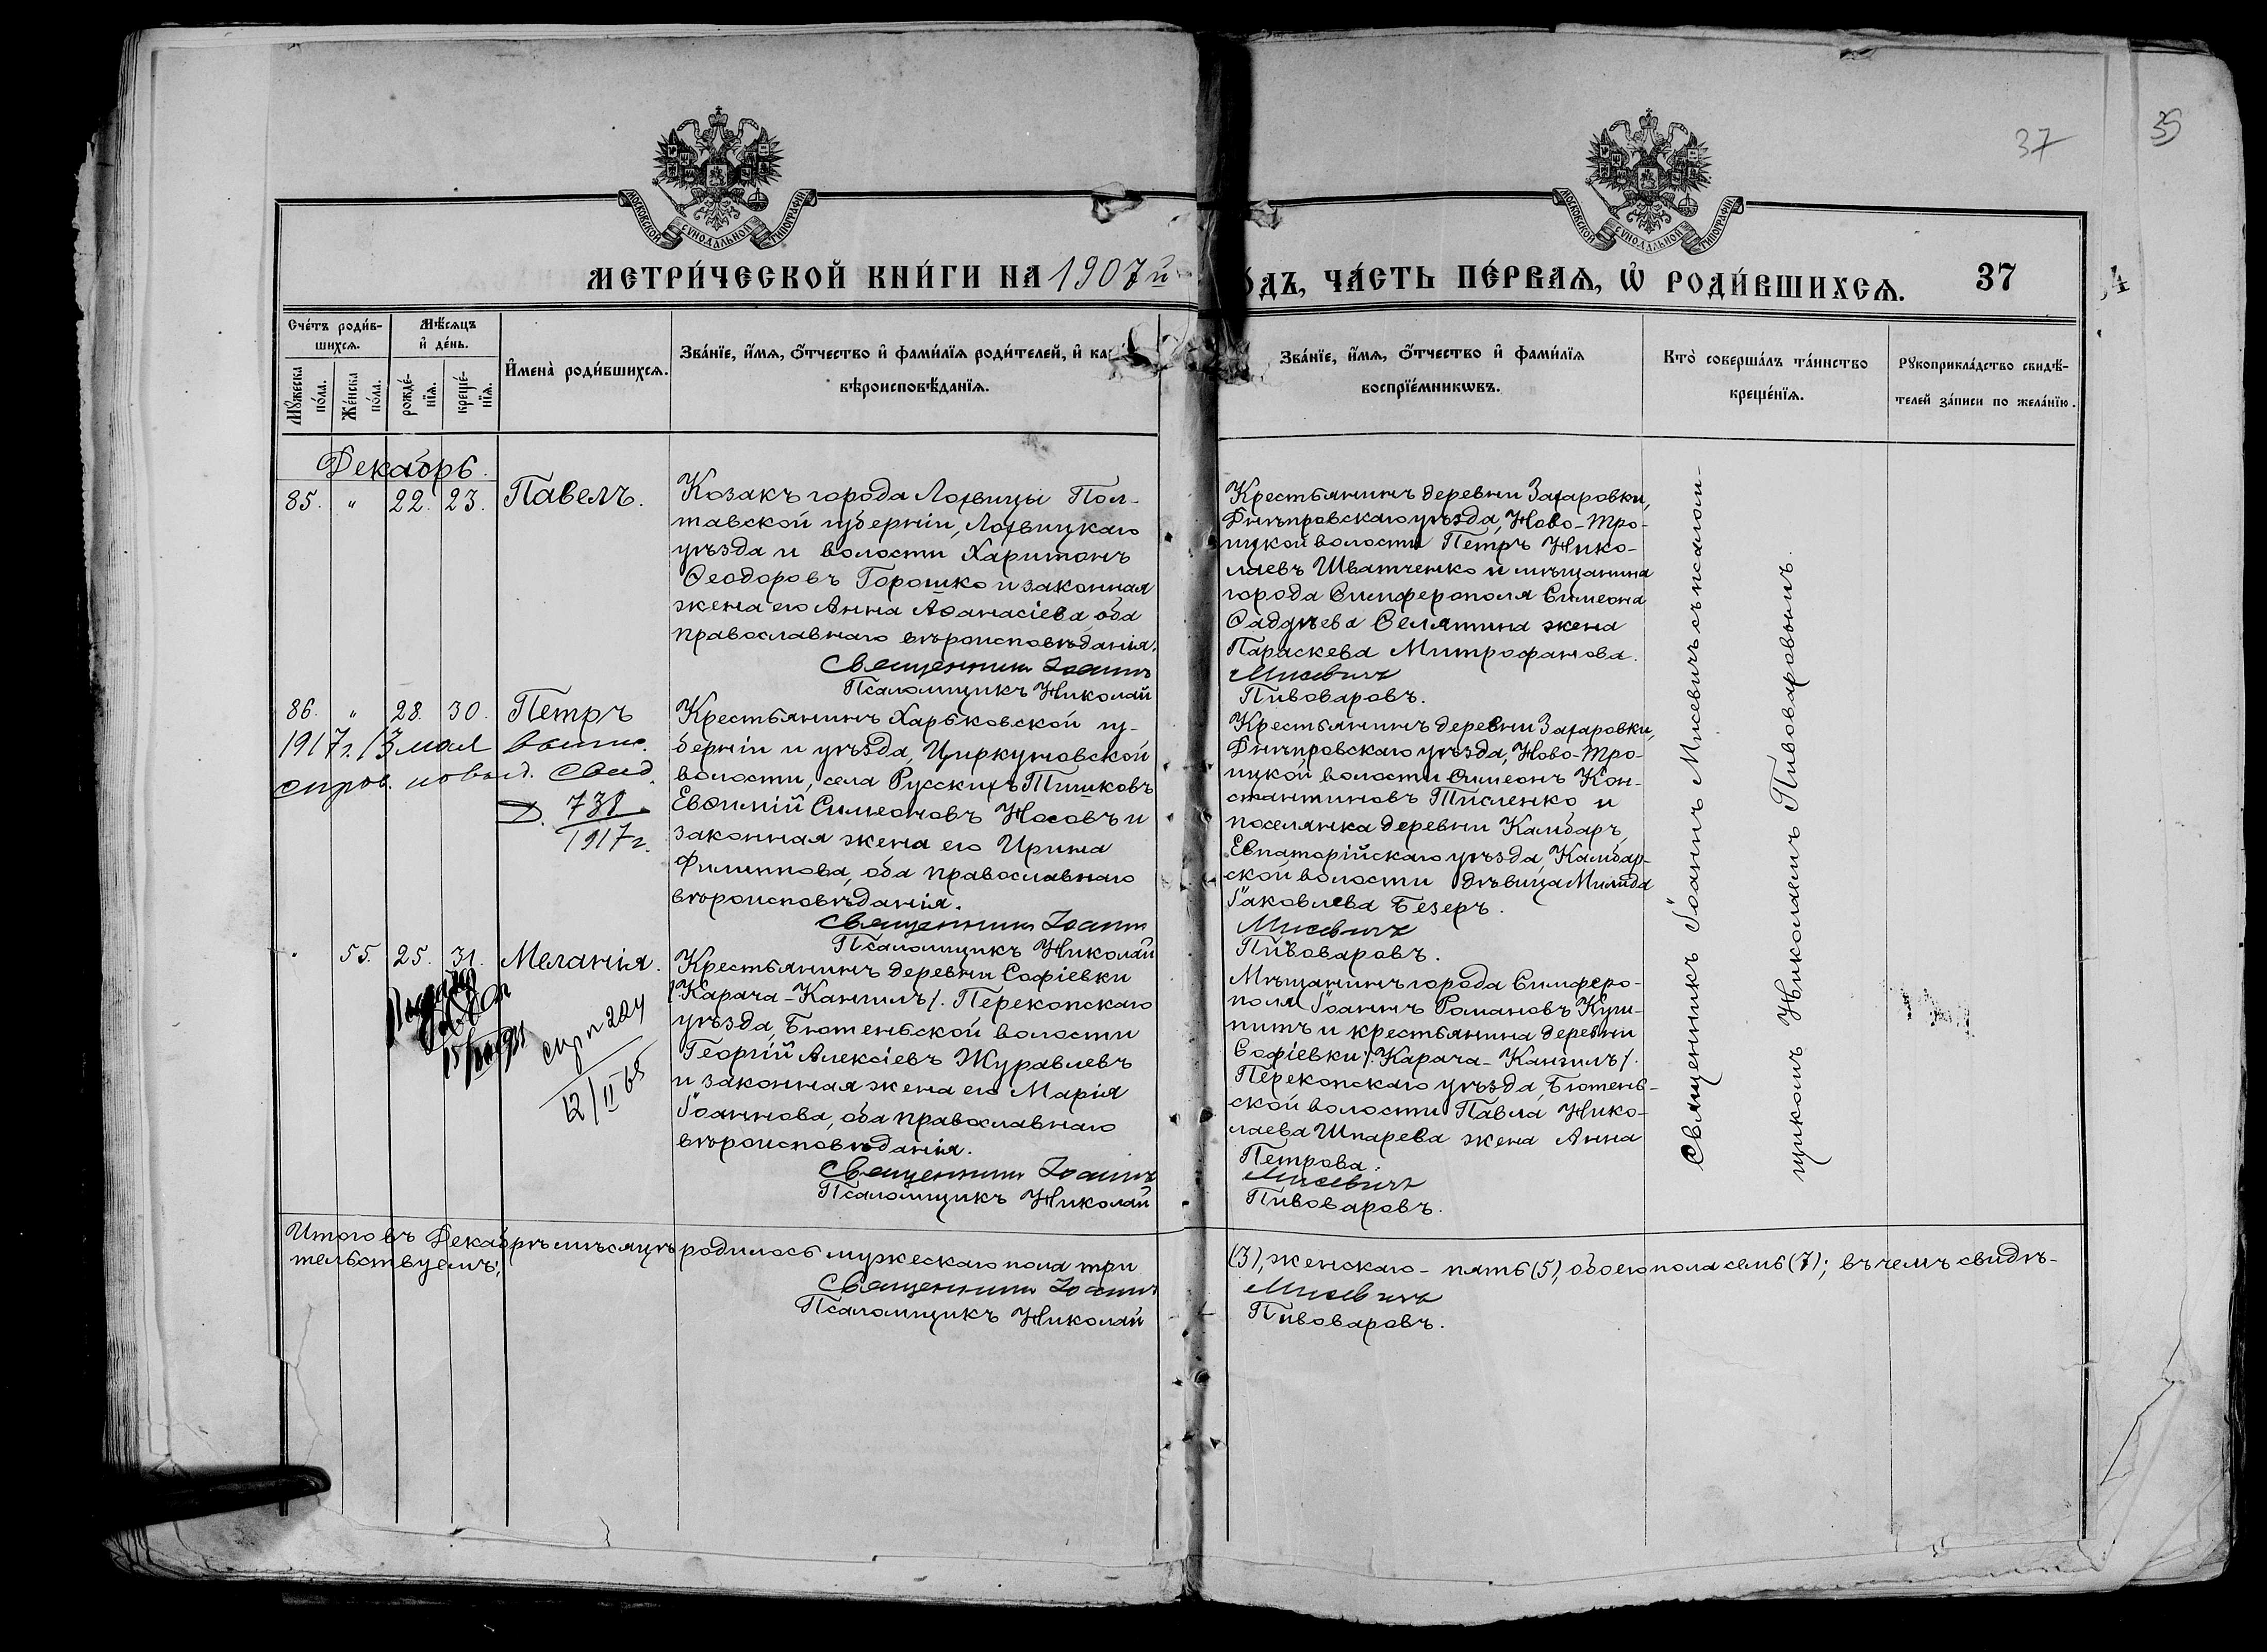 37
35
МОСКОВСКОЙ СУНОДАЛЬНОЙ ТИПОГРАФІИ
МОСКОВСКОЙ СУНОДАЛЬНОЙ ТИПОГРАФІИ
МЕТРИ́ЧЕСКОЙ КНИ́ГИ НА 1907й
О́ДЪ, ЧА́СТЬ ПЕ́РВАЯ, Ѡ РОДИ́ВШИХСЯ. 37
Сче́тъ роди́в-
шихся.
Му́жеска по́ла.
Же́нска по́ла.
Мѣ́сяцъ
и де́нь.
рожде́-
нїя.
креще́-
нїя.
Имена̀ роди́вшихся.
Зва́нїе, и́мя, о́тчество и фами́лїя роди́телей, и ка
вѣроисповѣ́данїя.
Зва́нїе, и́мя, о́тчество и фами́лїя
воспрїе́мниковъ.
Кто̀ соверша́лъ та́инство
креще́нїя.
Рукоприкла́дство свидѣ́-
телей за́писи по жела́нїю.
Декабрь.
85. " 22. 23. Павелъ.
Козакъ города Лохвицы Пол-
тавской губерніи, Лохвицкаго
уѣзда и волости Харитонъ
Ѳеодоровъ Горошко и законная
жена его Анна Аѳанасіева, оба
православнаго вѣроисповѣданія.
Священникъ Іоаннъ
Псаломщикъ Николай
Крестьянинъ деревни Захаровки,
Днѣпровскаго уѣзда, Ново-Тро-
ицкой волости Петръ Нико-
лаевъ Шватченко и мѣщанина
города Симферополя Симеона
Ѳаддѣева Селятина жена
Параскева Митрофанова.
Мисевичъ
Пивоваровъ.
86. " 28. 30. Петръ
1917г. 13 мая выпис.
Д. 738
1917г.
Крестьянинъ Харьковской гу-
берніи и уѣзда, Циркуновской
волости, села Русскихъ Тишковъ
Евѳимій Симеоновъ Носовъ и
законная жена его Ирина
Филиппова, оба православнаго
вѣроисповѣданія.
Священникъ Іоаннъ
Псаломщикъ Николай
Крестьянинъ деревни Захаровки,
Днѣпровскаго уѣзда, Ново-Тро-
ицкой волости Симеонъ Кон-
стантиновъ Тисленко и
поселянка деревни Камбаръ,
Евпаторійскаго уѣзда, Камбар-
ской волости дѣвица Милида
Іаковлева Безеръ.
Мисевичъ
Пивоваровъ.
55. 25. 31. Меланія.
12/II 65
Крестьянинъ деревни Софіевки
/Карача-Кангилъ/. Перекопскаго
уѣзда, Бютеньской волости
Георгій Алексіевъ Журавлевъ
и законная жена его Марія
Іоаннова, оба православнаго
вѣроисповѣданія.
Священникъ Іоаннъ
Псаломщикъ Николай
Мѣщанинъ города Симферо-
поля Іоаннъ Романовъ Куш-
питъ и крестьянина деревни
Софіевки /.Карача-Кангилъ/.
Перекопскаго уѣзда, Бютень-
ской волости Павла Нико-
лаева Шпарева жена Анна
Петрова.
Мисевичъ
Пивоваровъ.
Священникъ Іоаннъ Мисевичъ съ псалом-
щикомъ Николаемъ Пивоваровымъ.
Итого въ Декабрѣ мѣсяцѣ родилось мужескаго пола три
(3), женскаго - пять (5), обоего пола семь (7); въ чемъ свидѣ-
тельствуемъ;
Священникъ Іоаннъ
Мисевичъ
Псаломщикъ Николай
Пивоваровъ.